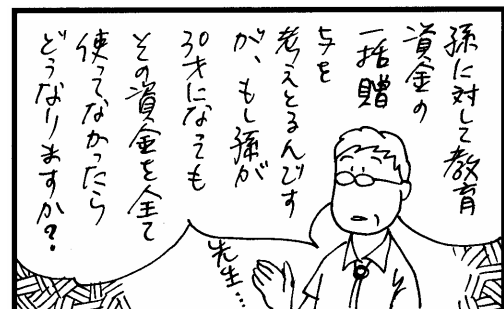 孫に対して教育
資金の
一括贈
与を
考えとるんです
が、もし孫が
30才になっても
その資金を全て
使ってなかったら
どうなりますか?
先生…